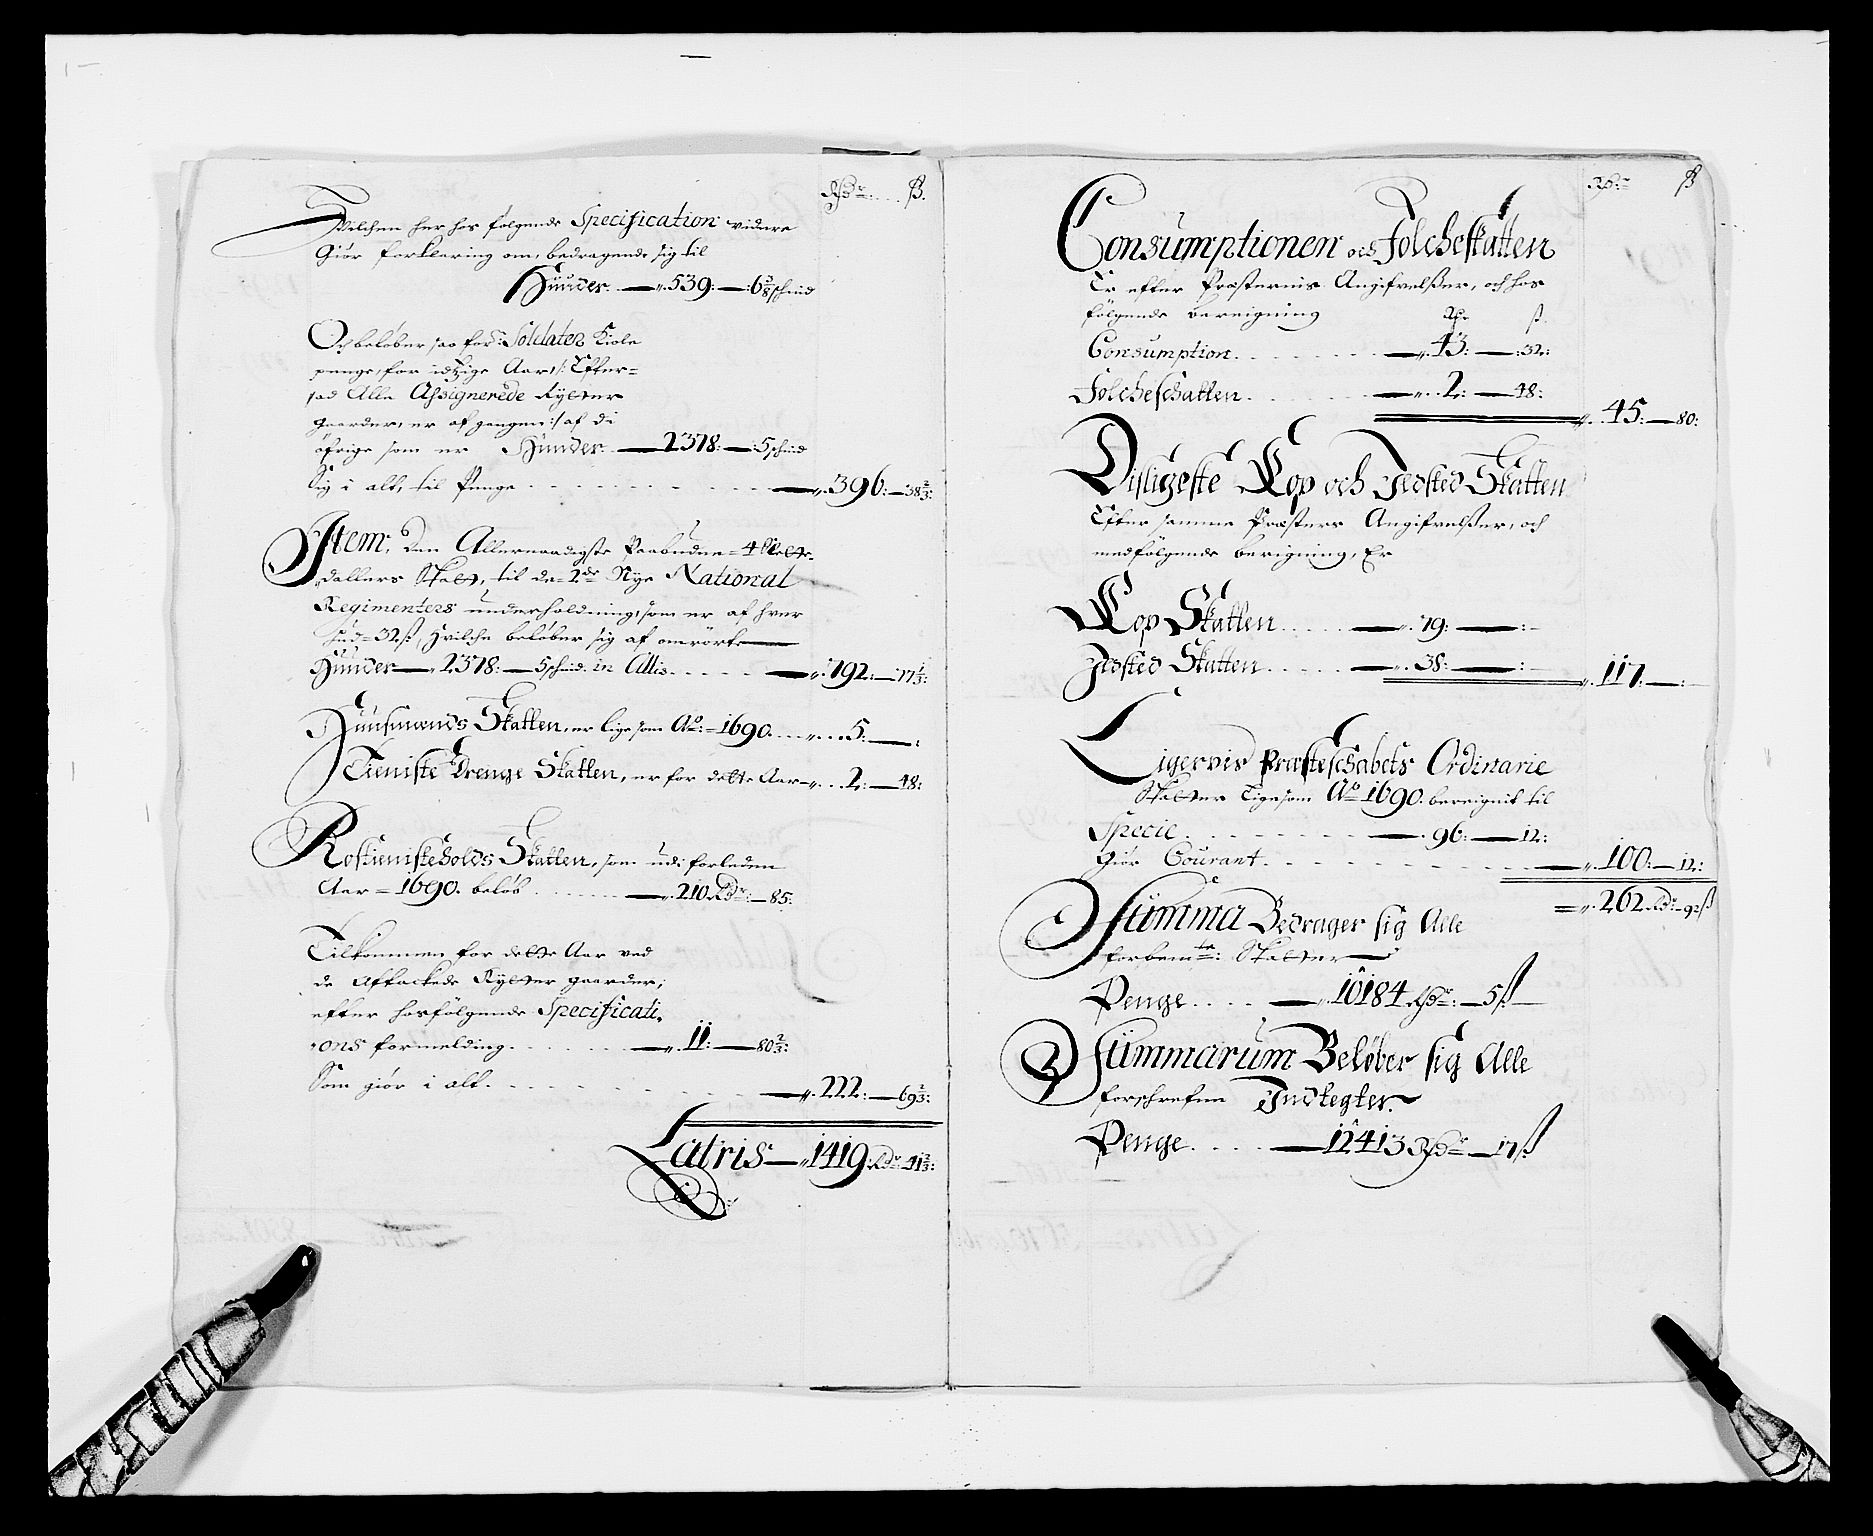 Rdr: ß.
Hvilchen her hos følgende Specification videre
Giør forklaring om, bedragende sig til
Huuder — 539: — 6 5/8 schind
Och beløber saa for: Soldater Kiole
penge, for udtzige Aar /: Effter=
sad Alle Assignerede Rytter
gaarder, er af gangen :/ af di
öfrige som er Huuder — 2378: — 5 schind
Sig i alt, til Penge — 396: — 38 2/3:
Item, Den Allernaadigste Paabudne = 4 Slette
dallers Skatt, til de = 2de Nye National
Regimenters underholdning, som er af hver
Hud = 32 ß, Hvilche beløber sig af omrörte
Huuder — 2378: — 5 schind: in Allis — 792: — 77 1/3:
Huusmands Skatten, er lige som Ao: = 1690 — 5: — :
Tieniste Drenge Skatten, er for dette Aar — 2: — 48:
Rostienisteholds Skatten, som udi forleden
Aar = 1690. beløb — 210 Rdr: — 85:
Tilkommen for dette Aar ved
de Aftackede Rytter gaarder;
efter hosfölgende Specificati,
,ons formelding — 11: — 80 2/3:
Som giør i alt — 222: — 69 2/3:
Latris — 1419 Rdr 41 2/3:
Rdr: ß
Consumptionen och Folcheskatten
Er efter Præsternis Angifvelßer, och hos
fölgende bereigning Rdr ß.
Consumption — 43: — :32:
Folcheschatten — 2: — 48:
45: — 80:
Disligeste Kop och Ildsted Skatten
Efter samme Præsters Angifvelßer, och
medfölgende berigning, Er
Kop Skatten — 79: — : —
Ildsted Skatten — 38: — : —
117: — :
Ligervis Præsteschabets Ordinarie
Skatter Ligesom Ao 1690. bereignit til
Specie — 96: — 12:
Giør Courant — 100: — 12:
262 Rdr: — 92 ß
Summa Bedrager sig Alle
forbem:te: Skatter
Penge — 10184 Rdr: — 5 ß
Summarum Beløber sig Alle
forschrefne Indtegter
Penge — 12413 Rdr — 17 ß